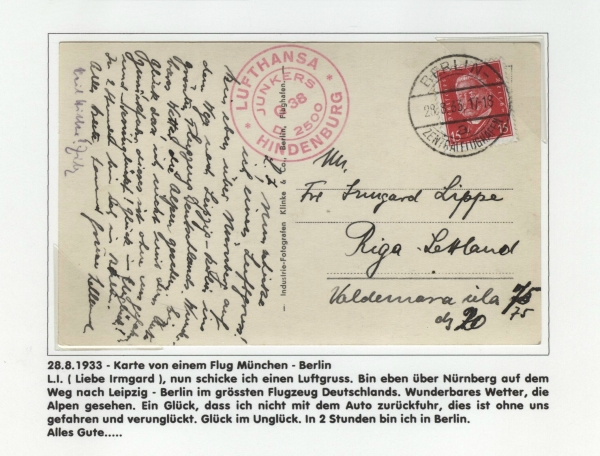 LUFTHANSA
JUNKERS
G38
D. 2500
HINDENBURG
BERLIN
ZENTRALFLUGHAFEN
15 15
Industrie-Fotografen Klinke & Co., Berlin, Flughafen
Frl Irmgard Lippe
Riga-Lettland
Valdemara iela 75
75
dz 20
L. I. Nun schicke
ich einen Luftgruss!
Bin eben über Nürnberg auf
dem Weg nach Leipzig-Berlin im
größten Flugzeug Deutschlands. Wunderb.
Wetter, die Alpen gesehen. Ein
Glück, dass ich nicht mit dem Auto
zurückfuhr, dies ist ohne uns gefahren
und verunglückt. Glück im Unglück!
In 2 Stunden bin ich in Berlin.
Alles Gute
28.8.1933 - Karte von einem Flug München - Berlin
L.I. ( Liebe Irmgard ), nun schicke ich einen Luftgruss. Bin eben über Nürnberg auf dem
Weg nach Leipzig - Berlin im grössten Flugzeug Deutschlands. Wunderbares Wetter, die
Alpen gesehen. Ein Glück, dass ich nicht mit dem Auto zurückfuhr, dies ist ohne uns
gefahren und verunglückt. Glück im Unglück. In 2 Stunden bin ich in Berlin.
Alles Gute.....